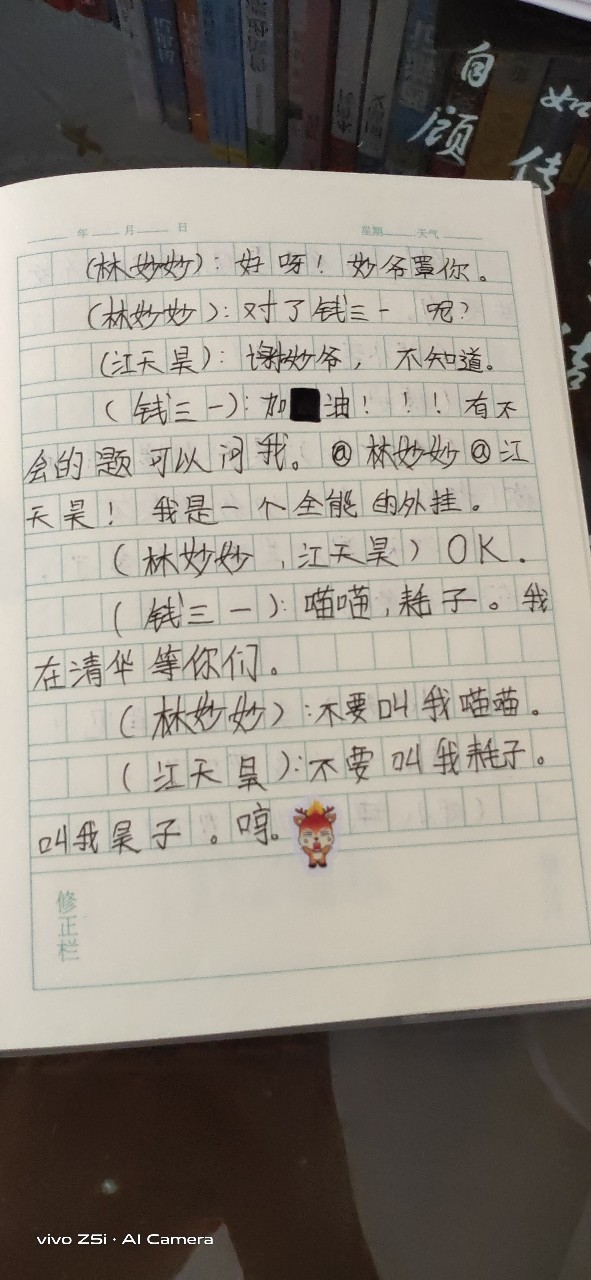 自 如
顾 传
年 月 日 星期 天气
(林妙妙)：好呀！妙爷罩你。
(林妙妙)：对了钱三一 呢？
(江天昊)：谢妙爷，不知道。
(钱三一)：加油！！！有不
会的题可以问我。@林妙妙@江
天昊！我是一个全能的外挂。
(林妙妙，江天昊) OK.
(钱三一)：喵喵，耗子。我
在清华等你们。
(林妙妙)：不要叫我喵喵。
(江天昊)：不要叫我耗子。
叫我昊子。哼。
修正栏
vivo Z5i · AI Camera